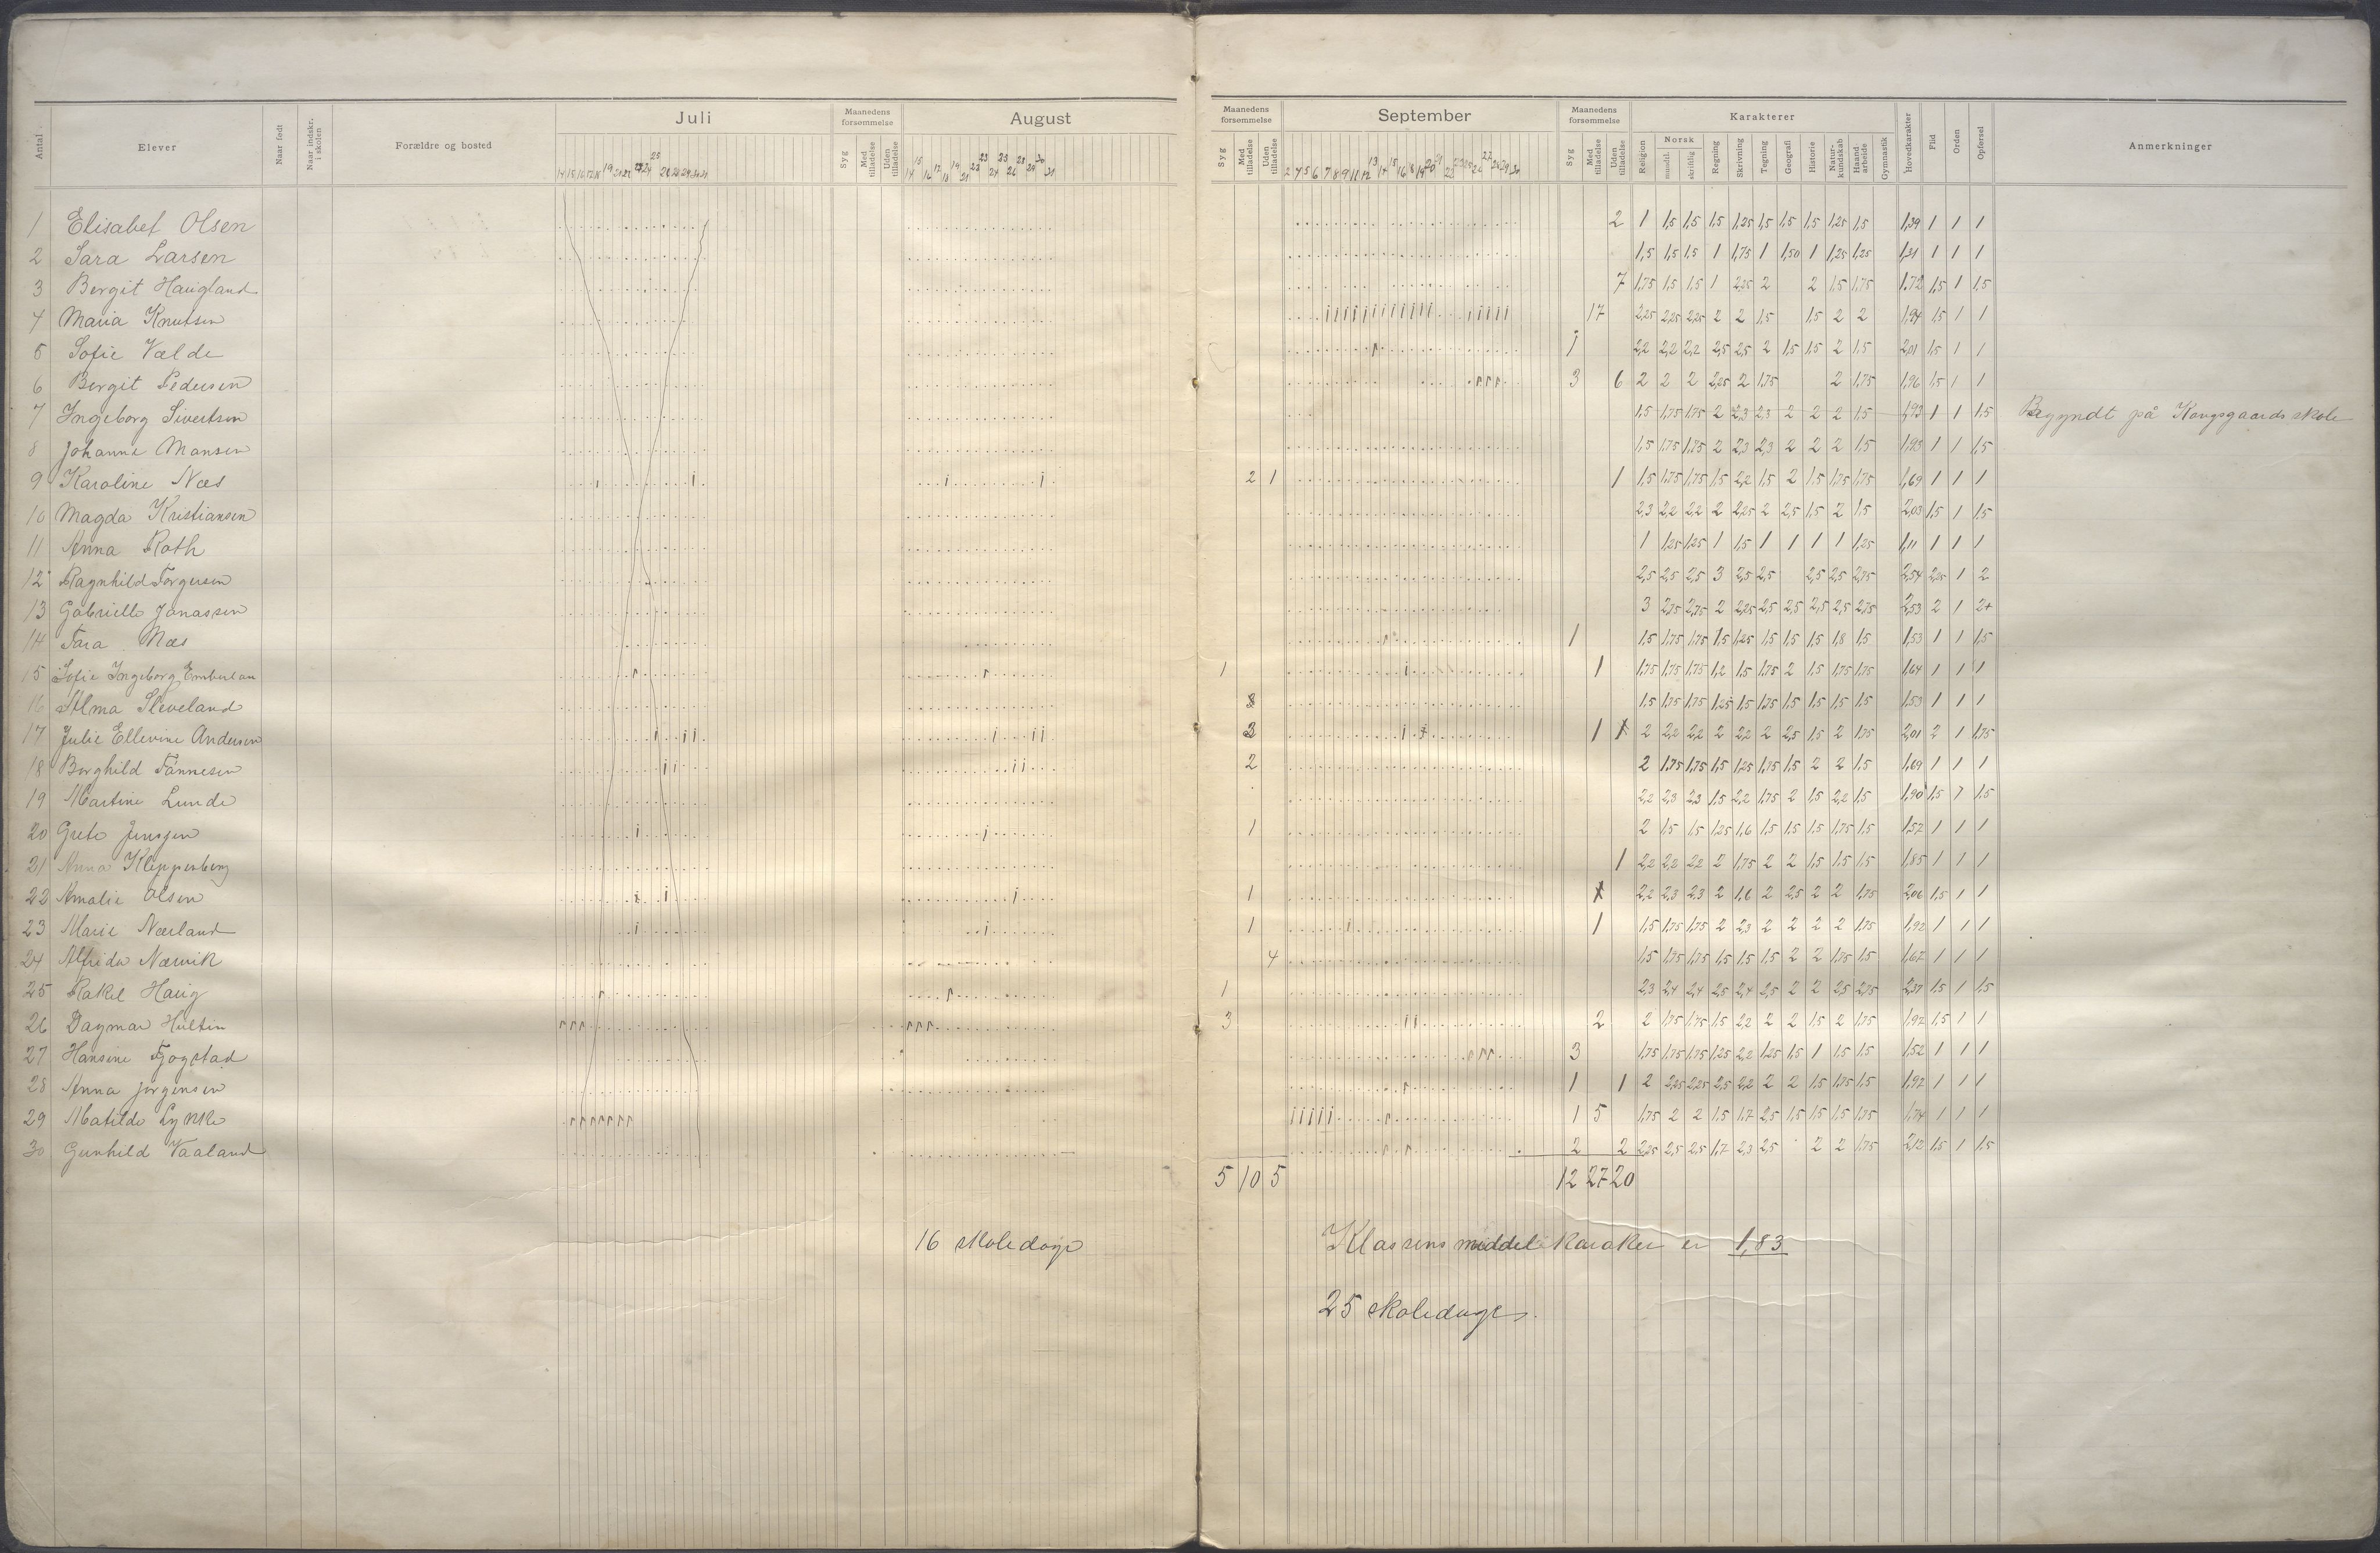 Antal Elever Naar født Naar indskr. i skolen Forældre og bosted Juli Maanedens forsømmelse Syg Med tilladelse Uden tilladelse August Maanedens forsømmelse Syg Med tilladelse Uden tilladelse September Maanedens forsømmelse Syg Med tilladelse Uden tilladelse Karakterer Religion Norsk mundtl. skriftlig Regning Skrivning Tegning Geografi Historie Natur-kundskab Haand-arbeide Gymnastik Hovedkarakter Flid Orden Opførsel Anmerkninger
1 Elisabet Olsen 2 1 1,5 1,5 1,5 1,25 1,5 1,5 1,5 1,25 1,5 1,39 1 1 1
2 Sara Larsen 1,5 1,5 1,5 1 1,75 1 1,50 1 1,25 1,25 1,31 1 1 1
3 Bergit Haugland 7 1,75 1,5 1,5 1 2,25 2 2 1,5 1,75 1.72 1,5 1 1,5
4 Maria Knutsen 17 2,25 2,25 2,25 2 2 1,5 1,5 2 2 1,94 1,5 1 1
5 Sofie Vælde 1 2,2 2,2 2,2 2,5 2,5 2 1,5 1,5 2 1,5 2,01 1,5 1 1
6 Bergit Pedersen 3 6 2 2 2 2,25 2 1,75 2 1,75 1,96 1,5 1 1
7 Ingeborg Sivertsen 1,5 1,75 1,75 2 2,3 2,3 2 2 2 1,5 1,93 1 1 1,5 Begyndt på Kongsgaards skole
8 Johanne Mansen 1,5 1,75 1,75 2 2,3 2,3 2 2 2 1,5 1,93 1 1 1,5
9 Karoline Næs 2 1 1 1,5 1,75 1,75 1,5 2,2 1,5 2 1,5 1,75 1,75 1,69 1 1 1
10 Magda Kristiansen 2,3 2,2 2,2 2 2,25 2 2,5 1,5 2 1,5 2,03 1,5 1 1,5
11 Anna Roth 1 1,25 1,25 1 1,5 1 1 1 1 1,25 1,11 1 1 1
12 Ragnhild Torgersen 2,5 2,5 2,5 3 2,5 2,5 2,5 2,5 2,75 2,54 2,25 1 2
13 Gabrielle Jonassen 3 2,75 2,75 2 2,25 2,5 2,5 2,5 2,5 2,75 2,53 2 1 2+
14 Tara Næs 1 1,5 1,75 1,75 1,5 1,25 1,5 1,5 1,5 1,8 1,5 1,53 1 1 1,5
15 Sofie Ingeborg 1 1 1,75 1,75 1,75 1,2 1,5 1,75 2 1,5 1,75 1,75 1,64 1 1 1
16 Alma Sleveland 1,5 1,75 1,75 1,25 1,5 1,75 1,5 1,5 1,5 1,5 1,53 1 1 1
17 Julie Ellevine Andersen 3 1 2 2,2 2,2 2 2,2 2 2,5 1,5 2 1,75 2,01 2 1 1,75
18 Borghild Tønnesen 2 2 1,75 1,75 1,5 1,25 1,75 1,5 2 2 1,5 1,69 1 1 1
19 Martine Lunde 2,2 2,3 2,3 1,5 2,2 1,75 2 1,5 2,2 1,5 1,90 1,5 1 1,5
20 Grete Jenssen 1 2 1,5 1,5 1,25 1,6 1,5 1,5 1,5 1,75 1,5 1,57 1 1 1
21 Anna Kleppesberg 1 2,2 2,2 2,2 2 1,75 2 2 1,5 1,5 1,5 1,85 1 1 1
22 Amalie Olsen 1 2,2 2,3 2,3 2 1,6 2 2,5 2 2 1,75 2,06 1,5 1 1
23 Marie Nærland 1 1 1,5 1,75 1,75 2 2,3 2 2 2 2 1,75 1,92 1 1 1
24 Alfrida Nærvik 4 1,5 1,75 1,75 1,5 1,5 1,5 2 2 1,75 1,5 1,67 1 1 1
25 Rakel Haug 1 2,3 2,4 2,4 2,5 2,4 2,5 2 2 2,5 2,75 2,37 1,5 1 1,5
26 Dagmar Hultin 3 2 2 1,75 1,75 1,5 2,2 2 2 1,5 2 1,75 1,92 1,5 1 1
27 Hansine Fjogstad 3 1,75 1,75 1,75 1,25 2,2 1,25 1,5 1 1,5 1,5 1,52 1 1 1
28 Anna Jørgensen 1 1 2 2,25 2,25 2,5 2,2 2 2 1,5 1,75 1,5 1,97 1 1 1
29 Matilde Lynke 1 5 1,75 2 2 1,5 1,7 2,5 1,5 1,5 1,5 1,75 1,74 1 1 1
30 Gunhild Vaaland 2 2 2,25 2,5 2,5 1,7 2,3 2,5 2 2 1,75 2,12 1,5 1 1,5
5 10 5 12 27 20
16 skoledage
Klassens middelkarakter er 1,83
25 skoledage.